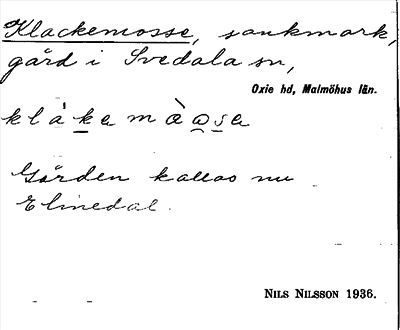 Klackemosse, sankmark,
gård i Svedala sn,
Oxie hd, Malmöhus län.
Gården kallas nu
Elinedal.
NILS NILSSON 1936.